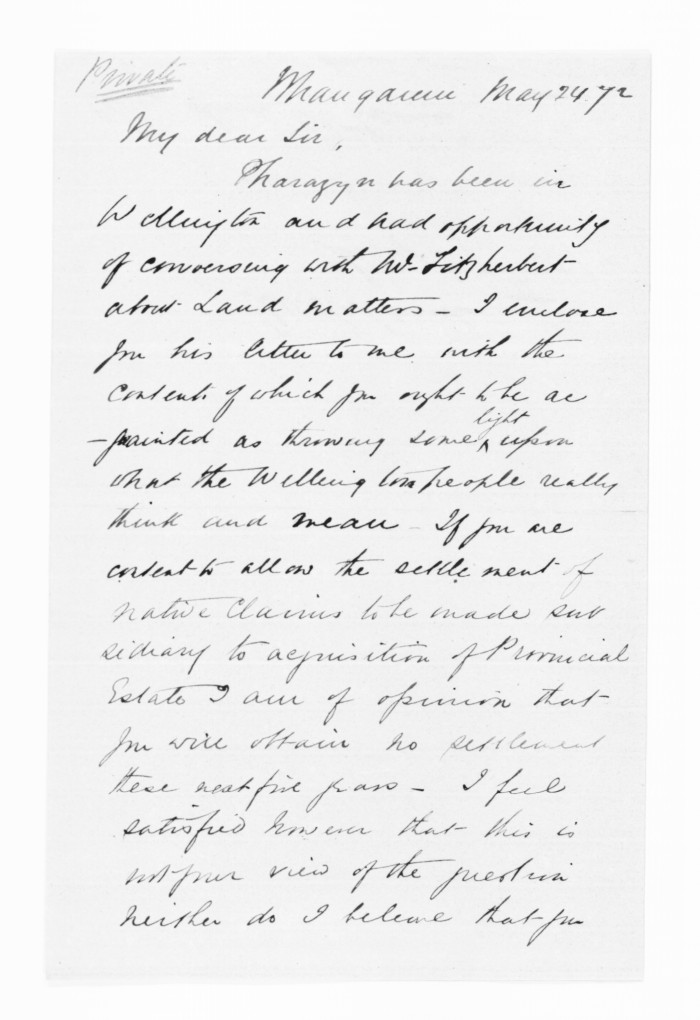 Private
Whanganui May 24. 72
My dear Sir,
Pharazyn has been in
Wellington and had opportunity
of conversing with Mr Fitzherbert
about Land matters – I enclose
you his letter to me with the
contents of which you ought to be ac
-quainted as throwing some light upon
what the Wellington people really
think and mean – If you are
content to allow the settlement of
native Claims to be made sub
sidiary to acquisition of Provincial
Estate I am of opinion that
you will obtain no settlement
these next five years – I feel
satisfied however that this is
not your view of the question
neither do I believe that you